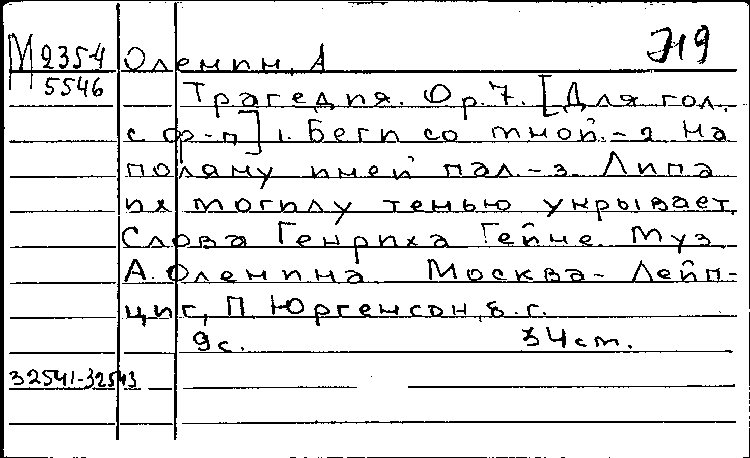 М 2354 Оленин, А
5546
Трагедия. Ор. 7. [Для гол.
с ф-п] 1. Беги со мной. - 2 На
поляну иней пал. - 3. Липа
их могилу тенью укрывает.
Слова Генриха Гейне. Муз.
А. Оленина. Москва - Лейп-
циг, П. Юргенсон, б. г.
9 с. 34 ст.
32541-32543